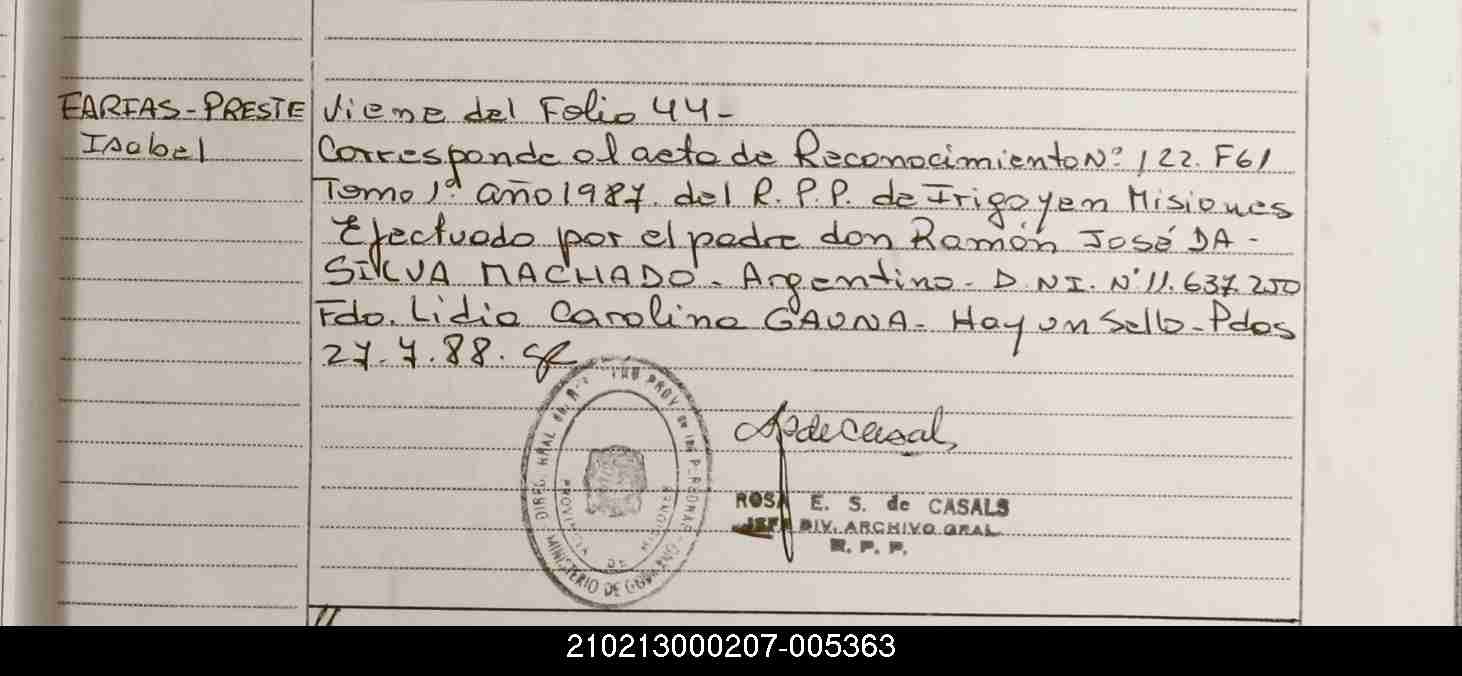 FARIAS-PRESTE
Isabel
Viene del Folio 44-
Corresponde al acta de Reconocimiento Nº 122. F61
Tomo 1º año 1987. del R. P. P. de Irigoyen Misiones
Efectuado por el padre don Ramón José DA-
SILVA MACHADO. Argentino- D. N.I. Nº 11.637.250
Fdo. Lidia Carolina GAUNA- Hay un sello-Pdas
27.7.88.
DIREC GRAL PROV DE LAS PERSONAS
PROVINCIA DE MISIONES
MINISTERIO DE GOBIERNO
ROSA E. S. de CASALS
JEFA DIV. ARCHIVO GRAL
R. P. P.
210213000207-005363